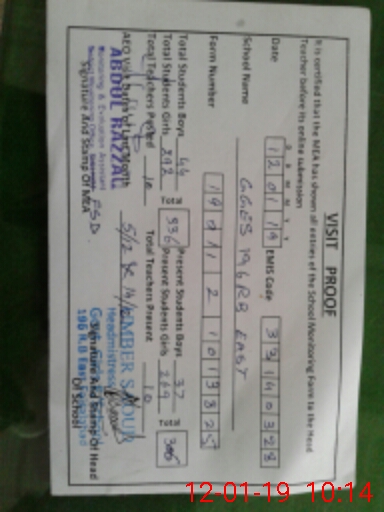 VISIT PROOF
It is certified that the MEA has shown all entries of the School Monitoring Form to the Head
Teacher before its online submission
D D M M Y Y
Date 1 2 0 1 1 9 EMIS Code 3 3 1 4 0 3 2 8
School Name GGES 196RB EAST
Form Number 1 9 0 1 1 2 1 0 1 3 3 2 5
Total Students Boys 44 Total Present Students Boys 37 Total
Total Students Girls 292 336 Present Students Girls 269 306
Total Teachers Posted 10 Total Teachers Present 10
AEO Visit Date of Last Month 5/12
ABDUL RAZZAQ
Monitoring & Evaluation Assistant
FSD
Signature And Stamp Of MEA
Headmistress
Signature And Stamp Of Head
Of School
12-01-19 10:14